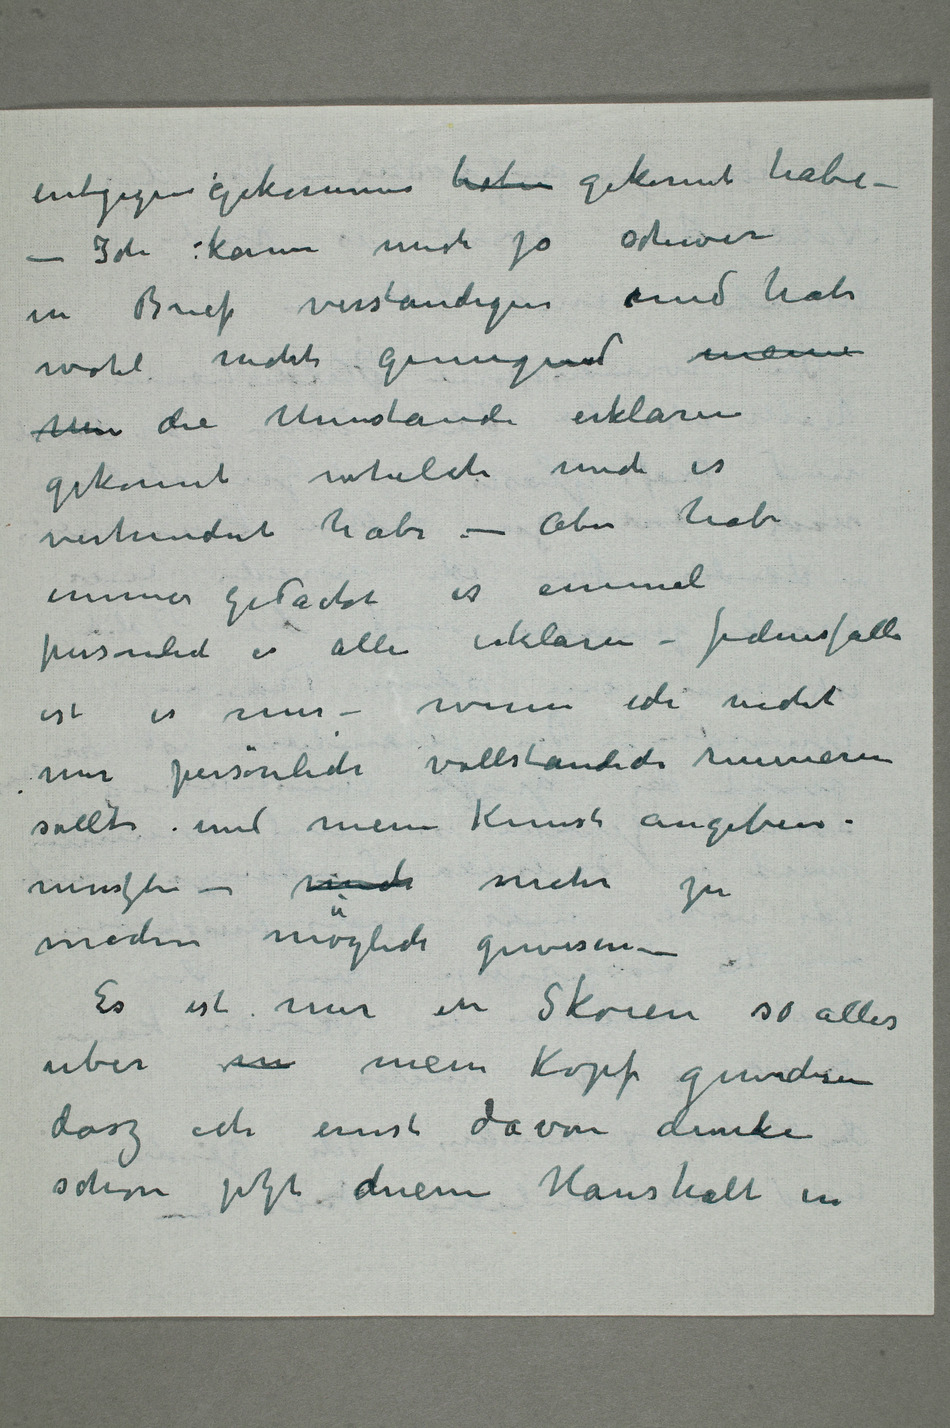 entgegen gekommen hatte gekonnt habe –
– Ich kann mich ja schwer
in Brief verständigen und habe
wohl nicht genugend meine
Um die Umstande erklaren
gekonnt welche mich es
verhindert habe – Aber habe
immer gedacht es einmal
personlich es alle erklaren – Jedensfalls
ist es mir – wenn ich nicht
mir persönlich vollstandich ruinieren
sollte und meine Kunst angeben
muszte – nicht mehr zu
machen möglich gewesen –
Es ist mir in Skoien so alles
uber m mein Kopf gewachsen
dasz ich ernst davon denke
schon jetzt diesem Haushalt in